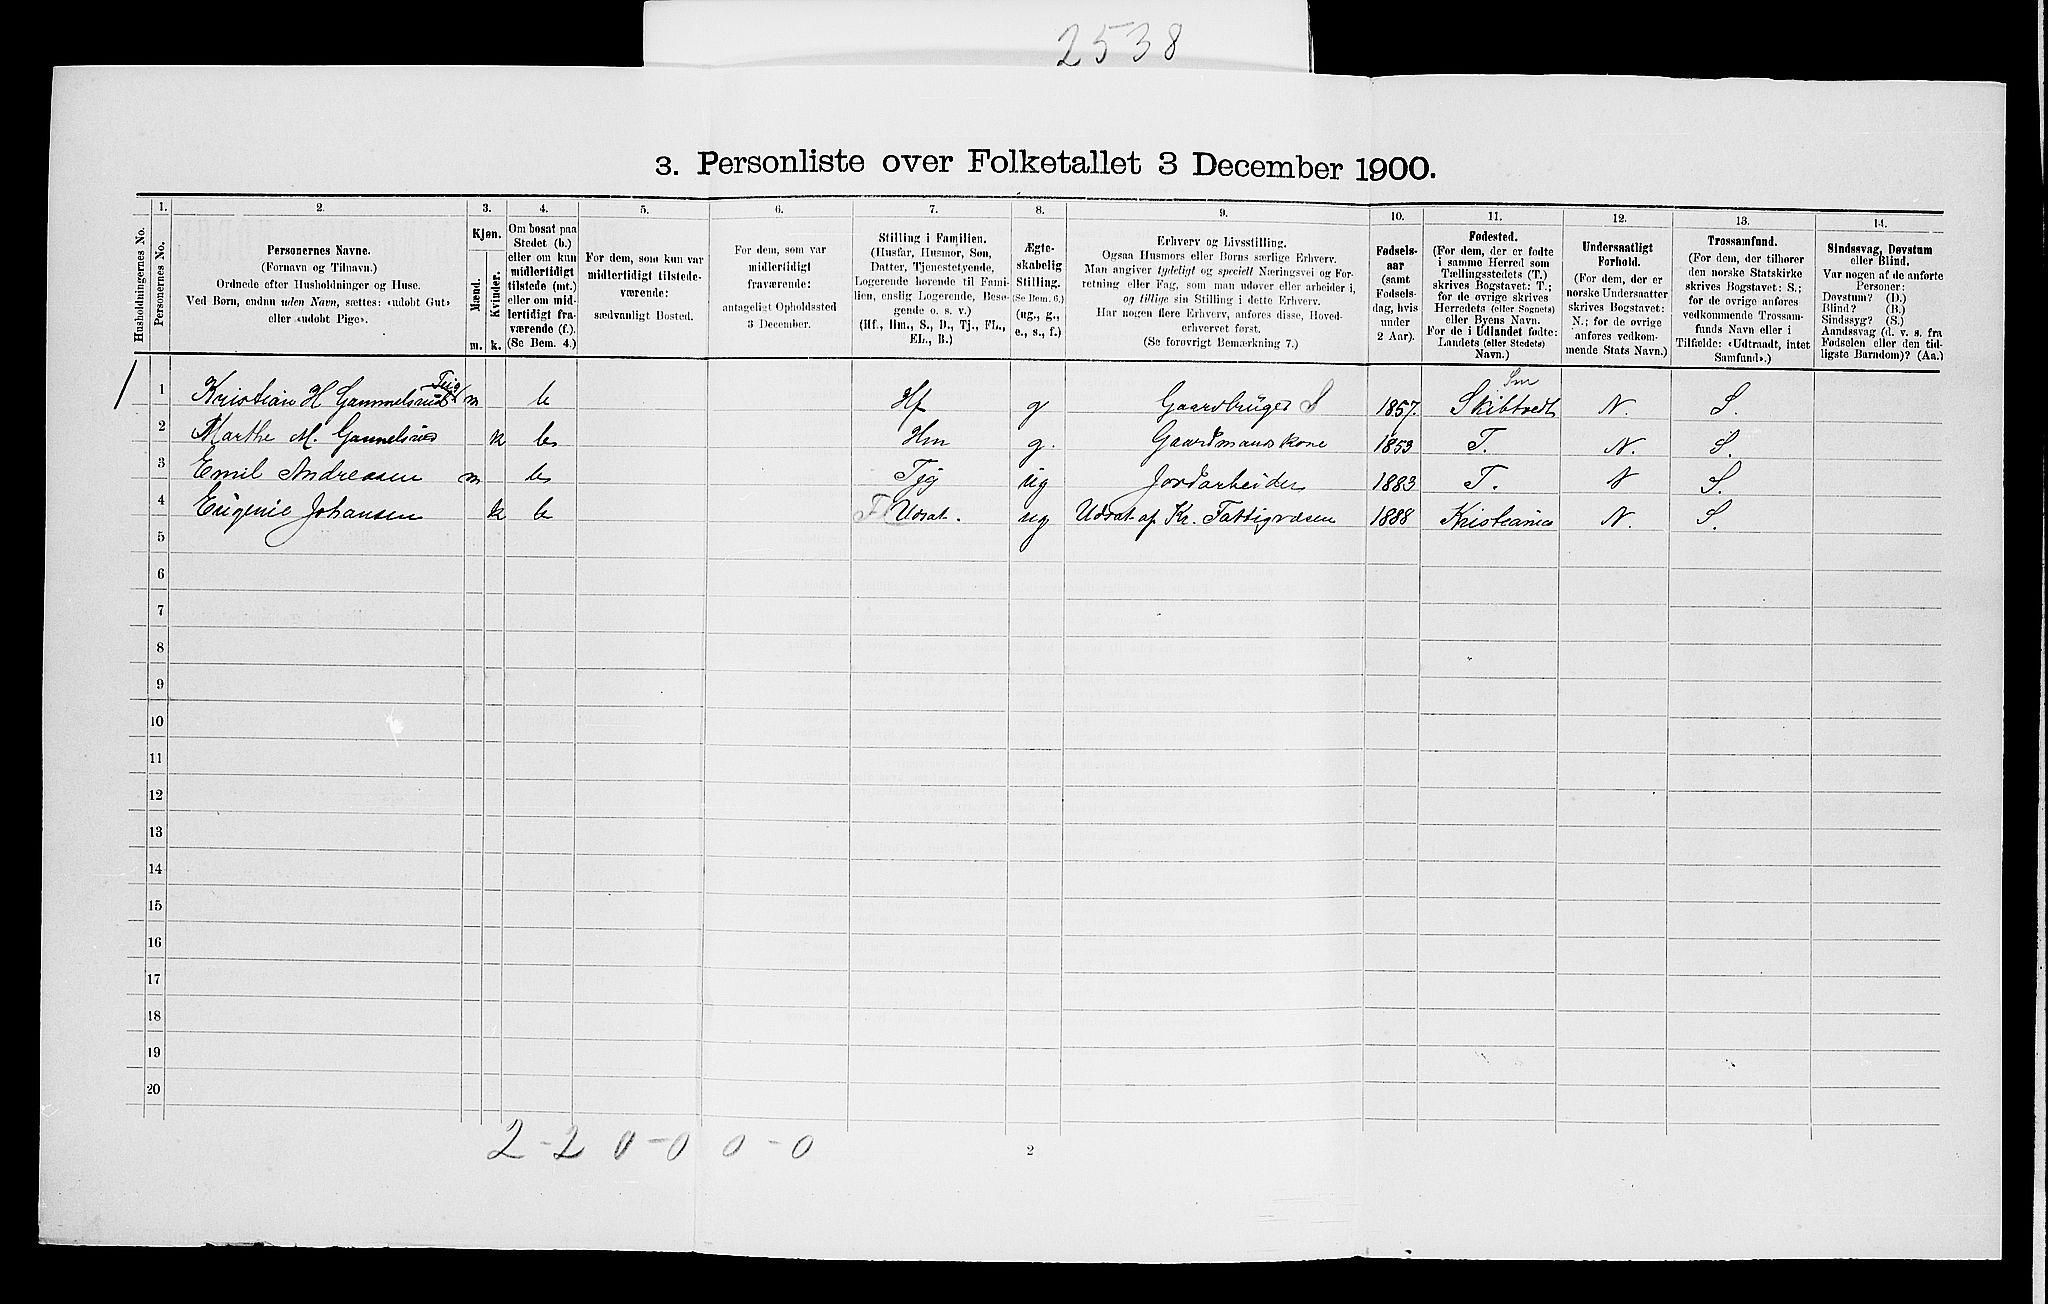 2538
3. Personliste over Folketallet 3 December 1900.
Husholdningernes No.
1.
Personernes No.
2.
Personernes Navne.
(Fornavn og Tilnavn.)
Ordnede efter Husholdninger og Huse.
Ved Børn, endnu uden Navn, sættes: «udøbt Gut»
eller «udøbt Pige».
3.
Kjøn.
Mænd.
Kvinder.
m. k.
4.
Om bosat paa
Stedet (b.)
eller om kun
midlertidigt
tilstede (mt.)
eller om mid-
lertidigt fra-
værende (f.).
(Se Bem. 4.)
5.
For dem, som kun var
midlertidigt tilstede-
værende:
sædvanligt Bosted.
6.
For dem, som var
midlertidigt
fraværende:
antageligt Opholdssted
3 December.
7.
Stilling i Familien.
(Husfar, Husmor, Søn,
Datter, Tjenestetyende,
Logerende hørende til Fami-
lien, enslig Logerende, Besø-
gende o. s. v.)
(Hf., Hm., S., D., Tj., FL.,
EL., B.)
8.
Ægte-
skabelig
Stilling.
(Se Bem. 6.)
(ug., g.,
e., s., f.)
9.
Erhverv og Livsstilling.
Ogsaa Husmors eller Børns særlige Erhverv.
Man angiver tydeligt og specielt Næringsvei og For-
retning eller Fag, som man udøver eller arbeider i,
og tillige sin Stilling i dette Erhverv.
Har nogen flere Erhverv, anføres disse, Hoved-
erhvervet først.
(Se forøvrigt Bemærkning 7.)
10.
Fødsels-
aar
(samt
Fødsels-
dag, hvis
under
2 Aar).
11.
Fødested.
(For dem, der er fødte
i samme Herred som
Tællingsstedets (T.)
skrives Bogstavet: T.;
for de øvrige skrives
Herredets (eller Sognets)
eller Byens Navn.
For de i Udlandet fødte:
Landets (eller Stedets)
Navn.)
12.
Undersaatligt
Forhold.
(For dem, der er
norske Undersaatter
skrives Bogstavet:
N.; for de øvrige
anføres vedkom-
mende Stats Navn.)
13.
Trossamfund.
(For dem, der tilhører
den norske Statskirke
skrives Bogstavet: S.;
for de øvrige anføres
vedkommende Trossam-
funds Navn eller i
Tilfælde: «Udtraadt, intet
Samfund».)
14.
Sindssvag, Døvstum
eller Blind.
Var nogen af de anførte
Personer:
Døvstum? (D.)
Blind? (B.)
Sindssyg? (S.)
Aandssvag (d. v. s. fra
Fødselen eller den tid-
ligste Barndom)? (Aa.)
1 1 Kristian H Gammelsrud Teig m b Hf g Gaardbruger S 1857. Skibtvedt Sm N. S.
2 Marthe M. Gammelsrud k b Hm g. Gaardmandskone 1853 T. N. S.
3 Emil Andreasen m b Tjg ug Jordarbeider 1883 T. N S.
4 Eugenie Johansen k b Fl Udsat. ug Udsat af Kr. Fattigvæsen 1888 Kristiania N. S.
5
6
7
8
9
10
11
12
13
14
15
16
17
18
19
20
2-2 0-0 0-0
2